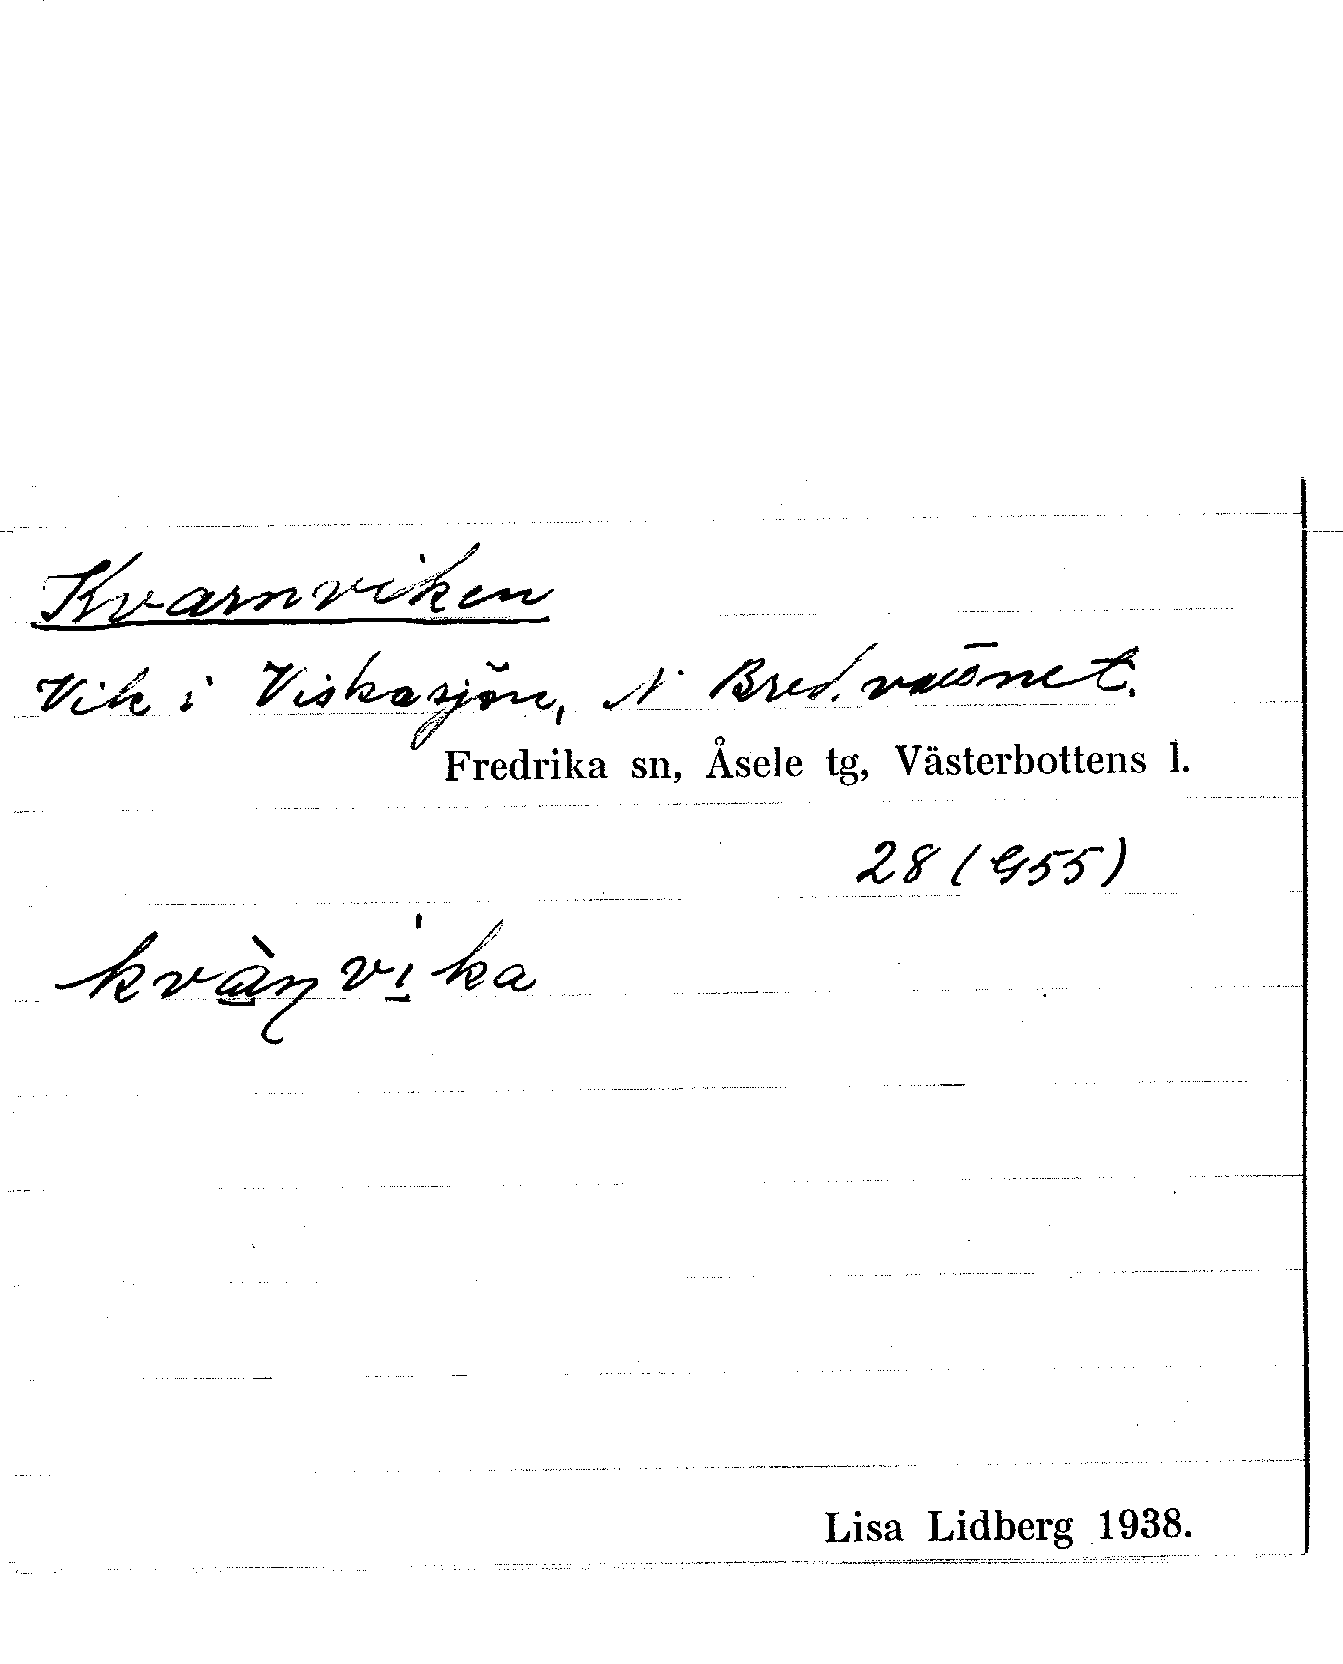 Kvarnviken
Vik i Viskasjön, N Bred.
Fredrika sn, Åsele tg, Västerbottens l.
28 (G55)
kvàŋvi̍ka
Lisa Lidberg 1938.